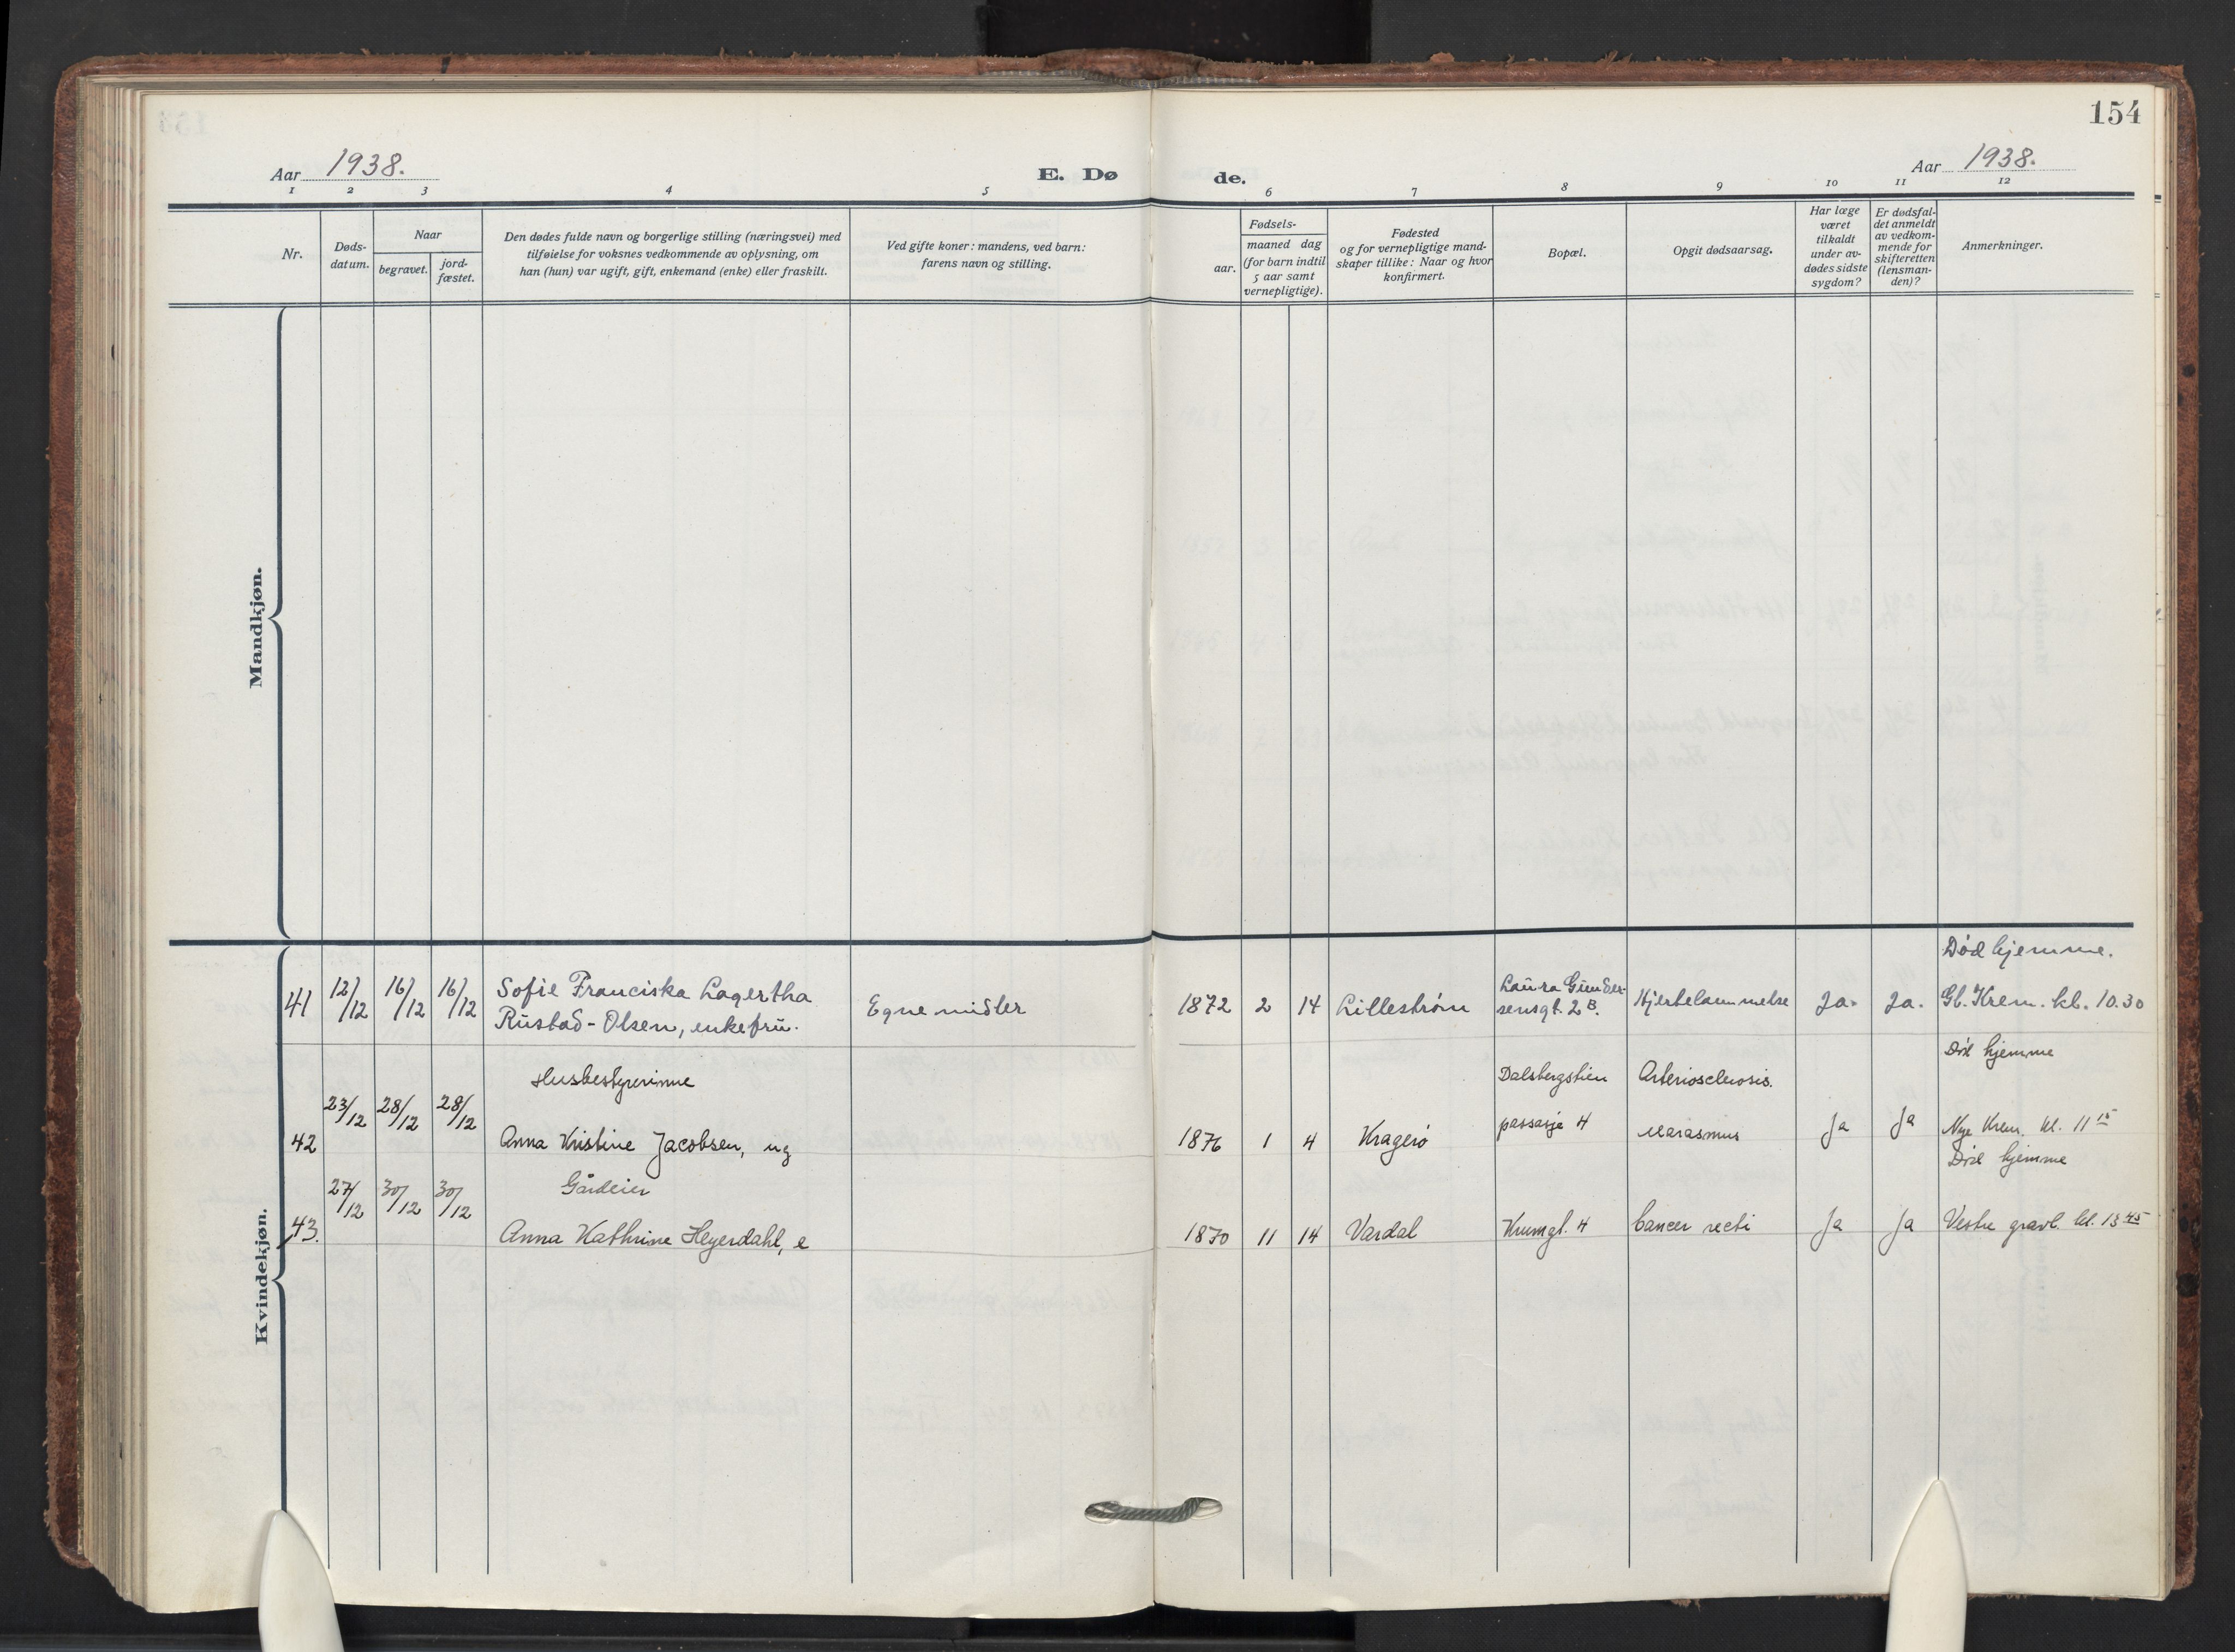 154
Aar 1938.
E. Døde.
Aar 1938.
1 2 3 4 5 6 7 8 9 10 11 12
Nr.
Døds-
datum.
Naar
begravet.
jord-
fæstet.
Den dødes fulde navn og borgerlige stilling (næringsvei) med
tilføielse for voksnes vedkommende av oplysning, om
han (hun) var ugift, gift, enkemand (enke) eller fraskilt.
Ved gifte koner: mandens, ved barn:
farens navn og stilling.
Fødsels-
aar.
maaned dag
(for barn indtil
5 aar samt
vernepligtige).
Fødested
og for vernepligtige mand-
skaper tillike: Naar og hvor
konfirmert.
Bopæl.
Opgit dødsaarsag.
Har læge
været
tilkaldt
under av-
dødes sidste
sygdom?
Er dødsfal-
det anmeldt
av vedkom-
mende for
skifteretten
(lensman-
den)?
Anmerkninger.
Mandkjøn.
Kvindekjøn.
Død hjemme.
41 12/12 16/12 16/12 Sofie Franciska Lagertha
Rustad-Olsen, enkefru.
Egne midler
1872 2 14 Lillestrøm
Laura Gunder-
sensgt. 2 B.
Hjertelammelse
Ja. Ja. Gl. Krem. kl. 10.30
Død hjemme
Husbestyrerinne
Dalsbergstien
Arteriosclerosis.
42 23/12 28/12 28/12 Anna Kristine Jacobsen, ug
1876 1 4 Kragerø
passasje 4
Marasmus
Ja Ja Nye Krem. kl. 11 15
Død hjemme
Gårdeier
43. 27/12 30/12 30/12 Anna Kathrine Heyerdahl, e
1870 11 14 Vardal Krumgt. 4 Cancer recti Ja Ja Vestre gravl. kl. 13 45